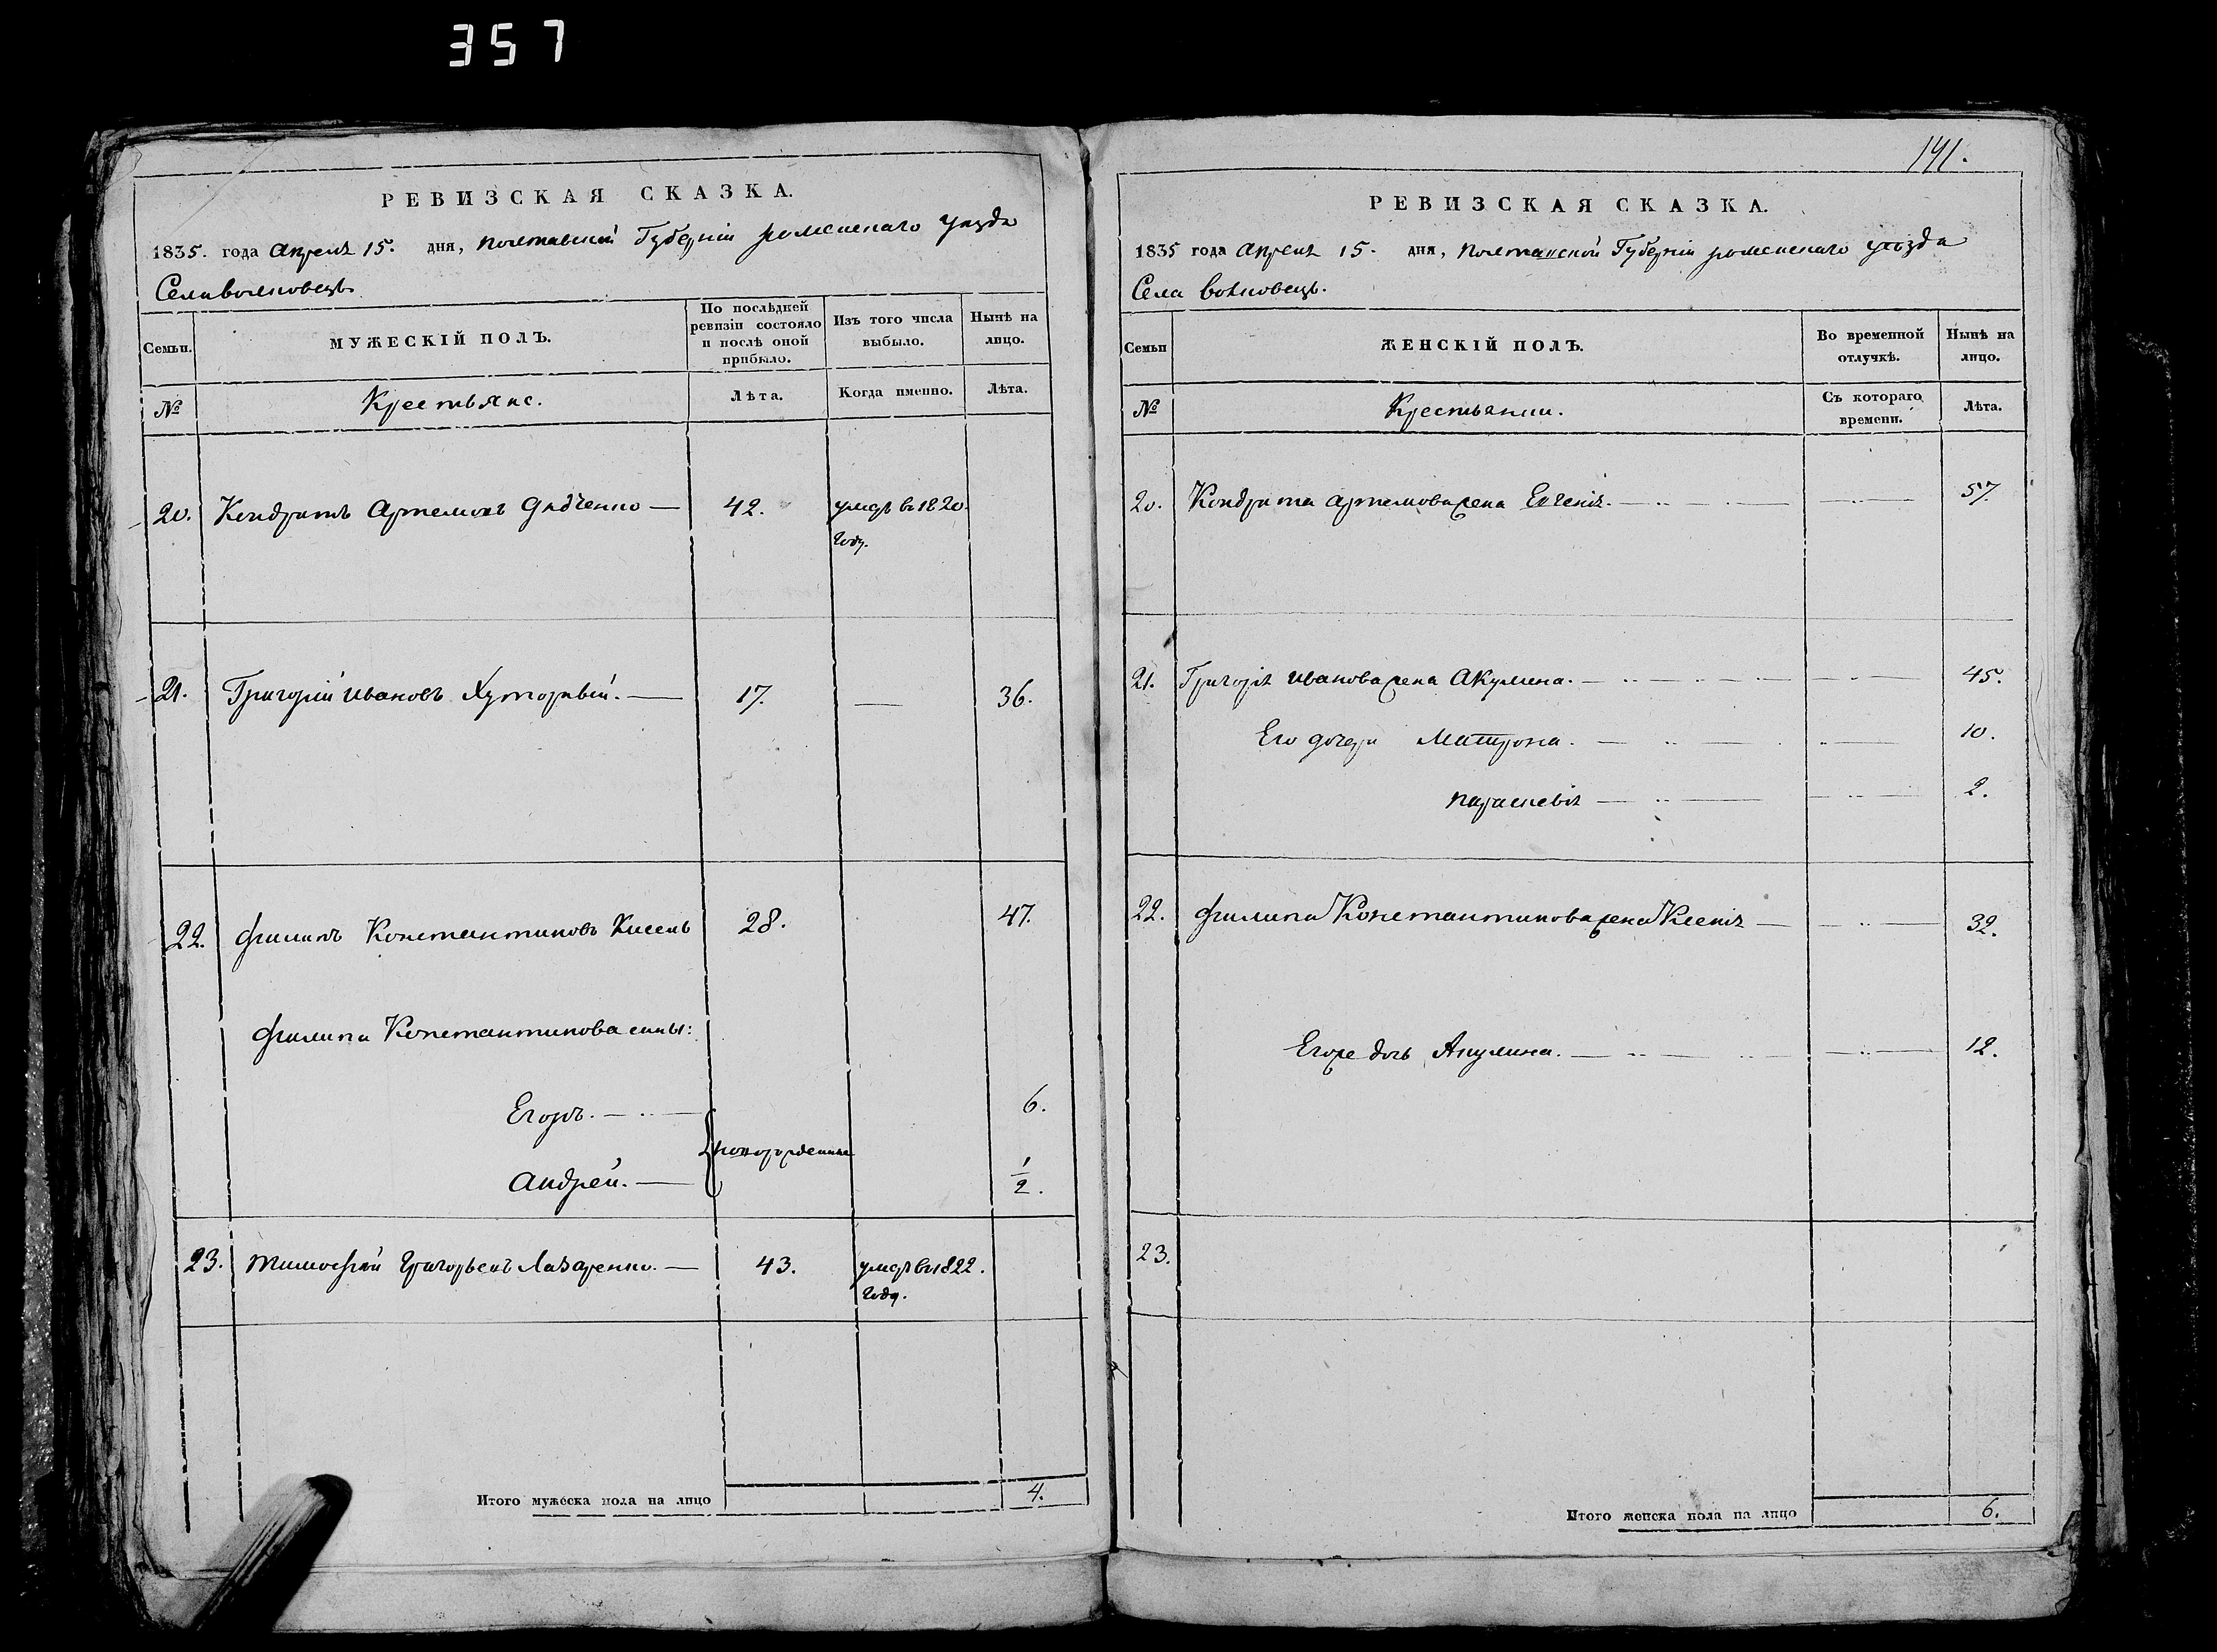 357
РЕВИЗСКАЯ СКАЗКА.
1835. года Апреля 15. дня, Полтавской Губерніи роменскаго уезда
Села Волковецъ
Семьи.
МУЖЕСКІЙ ПОЛЪ.
По послѣдней ревизіи состояло и послѣ оной прибыло.
Изъ того числа выбыло.
Нынѣ на лицо.
№
Крестьяне.
Лѣта.
Когда именно.
Лѣта.
20. Кондратъ Артемовъ Дядченко — 42. умеръ в 1820. году.
21. Григорій Ивановъ Хуторный. — 17. — 36.
22. Филипъ Константиновъ Кисель 28. 47.
Филипа Константинова сины:
Егоръ. — 6.
новорожденные
Андрей. — 1/2.
23. Тимофей Григорьевъ Лазаренко. — 43. умеръ в 1822. году.
Итого мужеска пола на лицо 4.
141.
РЕВИЗСКАЯ СКАЗКА.
1835 года Апреля 15. дня, Полтавской Губерніи роменскаго уезда
Села Волковецъ.
Семьи
ЖЕНСКІЙ ПОЛЪ.
Во временной отлучкѣ.
Нынѣ на лицо.
№
Крестьянки.
Съ котораго времени.
Лѣта.
20. Кондрата Артемова жена Евгенія. — 57.
21. Григорія Иванова жена Акулина. — 45.
Его дочери Матрона. — 10.
Параскевія — 2.
22. Филипа Константинова жена Ксенія — 32.
Егоже дочь Акулина. — 12.
23.
Итого женска пола на лицо 6.